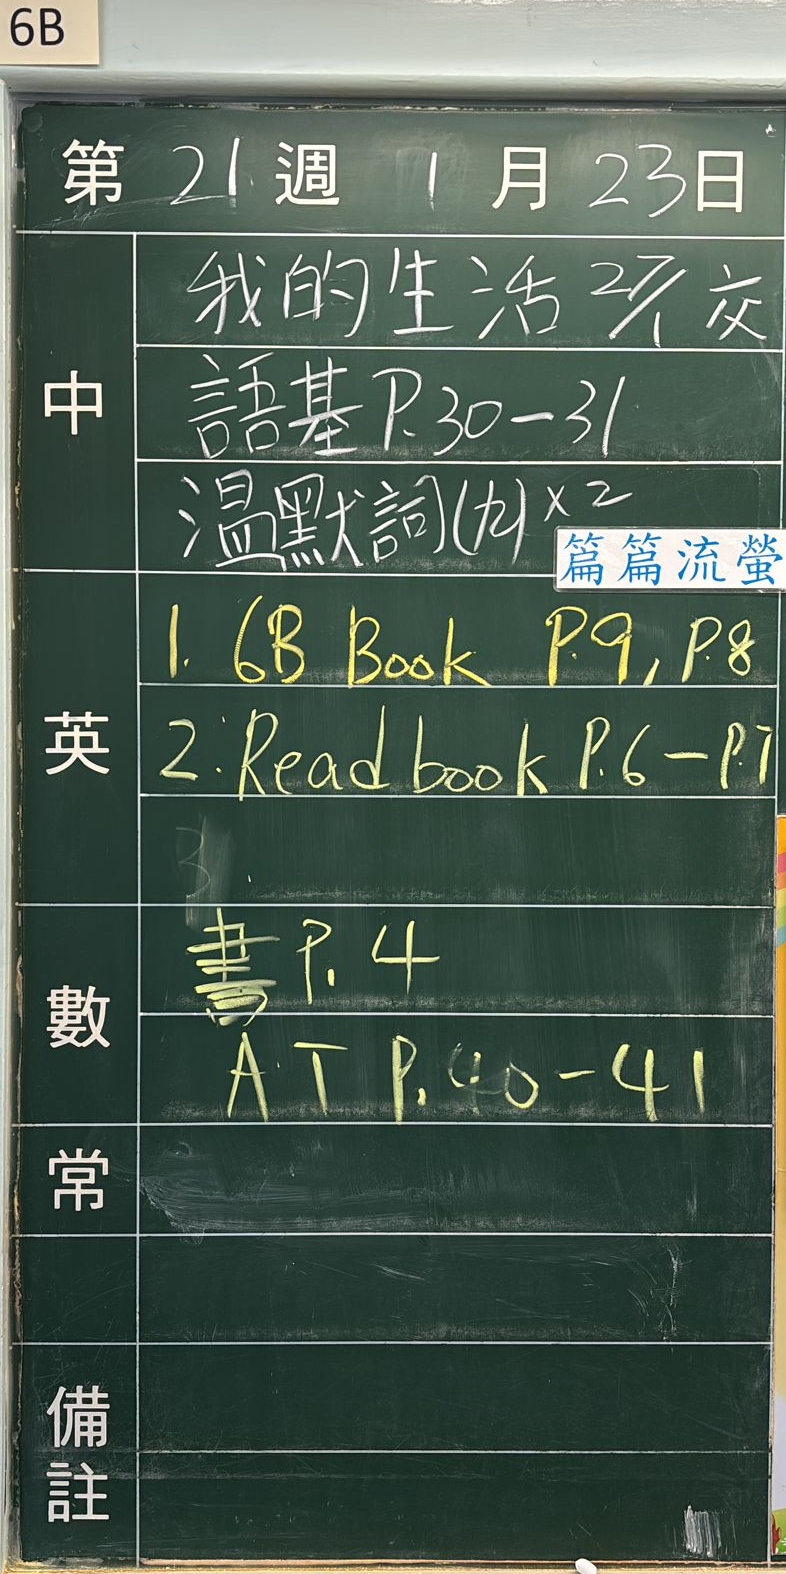 6B
第 21 週 1 月 23 日
中
我的生活 27/1 交
語基 P.30-31
溫默詞(九) x 2
篇篇流螢
英
1. 6B Book P.9, P.8
2. Readbook P.6-P.7
3.
數
書 P. 4
A.T P.40-41
常
備註